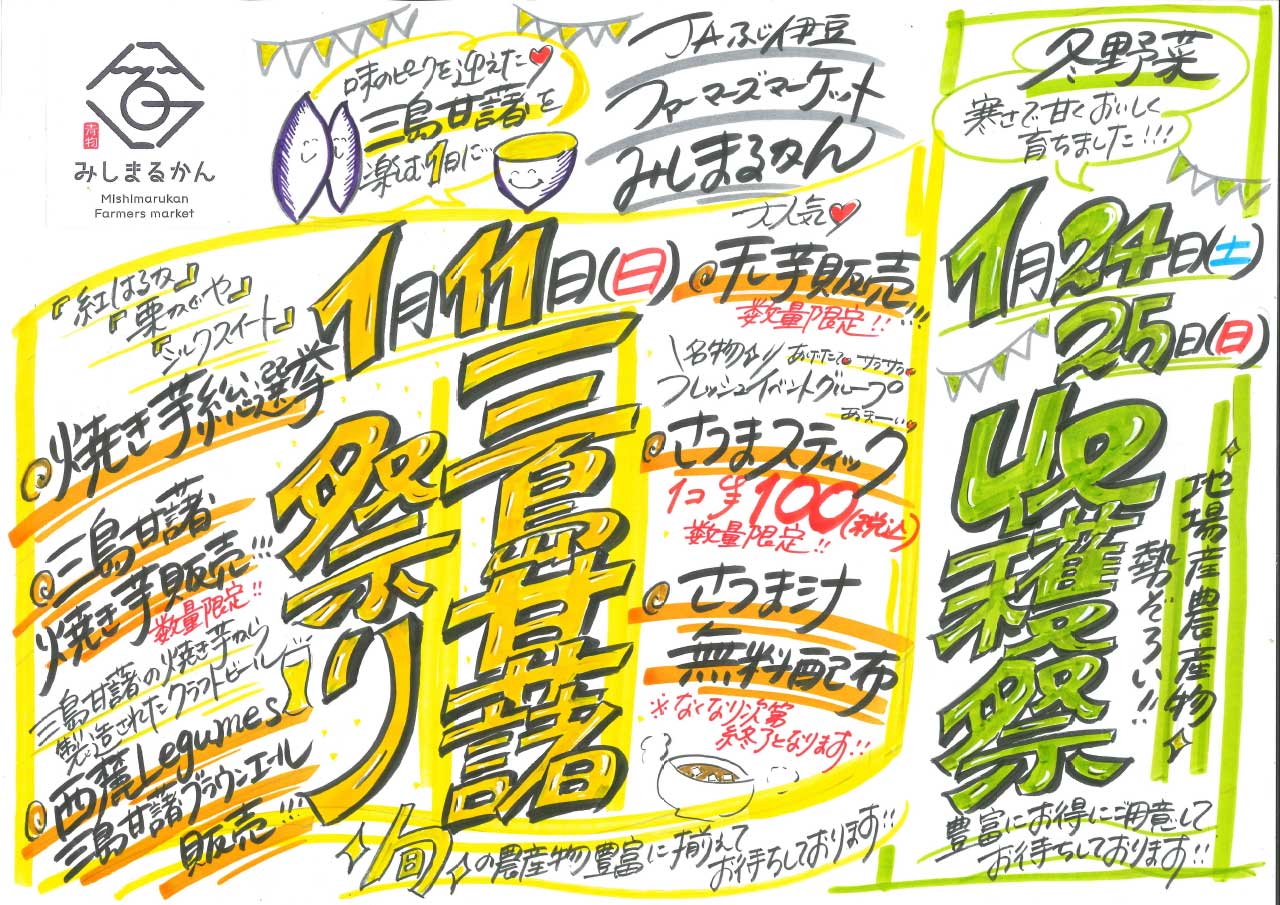 青物
みしまるかん
Mishimarukan
Farmers market
味のピークを迎えた
三島甘藷を
楽しむ1日に…
JAふじ伊豆
ファーマーズマーケット
みしまるかん
1月11日(日)
三島甘藷
祭り
『紅はるか』
『栗かぐや』
『シルクスイート』
焼き芋総選挙
三島甘藷
焼き芋販売!!!
数量限定!!
三島甘藷の焼き芋から
製造されたクラフトビール
西麓Legumes
三島甘藷ブラウンエール
販売!!!
大人気
天芋販売!!!
数量限定!!
\名物か//
あげたて サクサク
フレッシュイベントグループの
あまーい
さつまスティック
1コ 100(税込)
数量限定!!
さつま汁
無料配布
※なくなり次第
終了となります!!
旬の農産物豊富に揃えて
お待ちしております!!
冬野菜
寒さで甘くおいしく
育ちました!!!
1月24日(土)
25日(日)
収穫祭
地場産農産物
勢ぞろい!!
豊富にお得にご用意して
お待ちしております!!